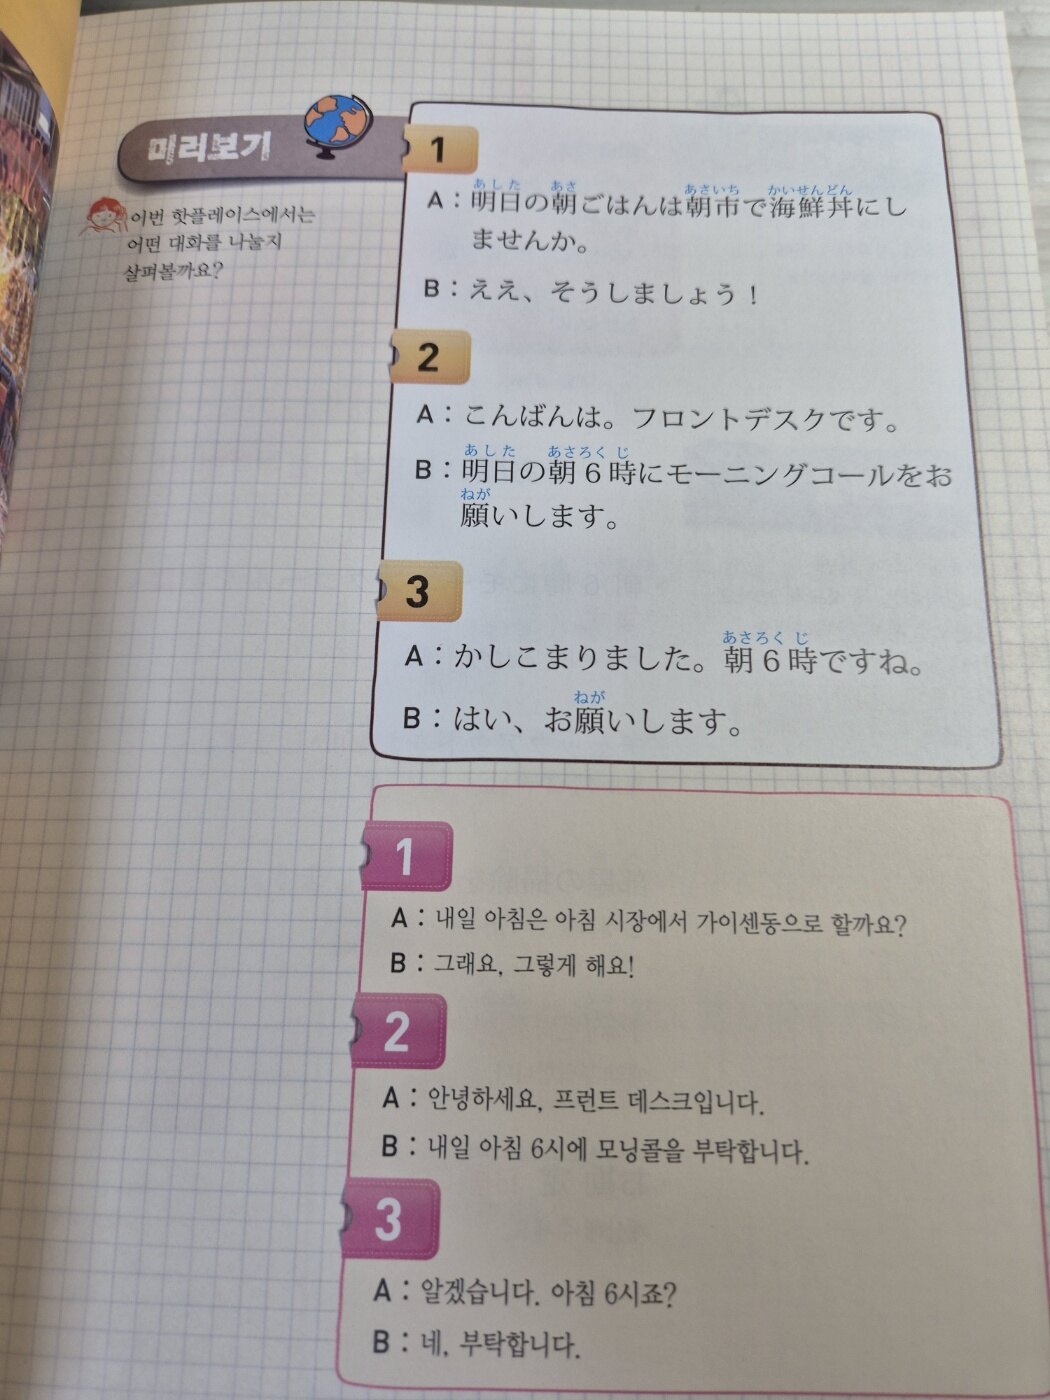 미리보기
이번 핫플레이스에서는
어떤 대화를 나눌지
살펴볼까요?
1
あした あさ あさいち かいせんどん
A : 明日の朝ごはんは朝市で海鮮丼にし
ませんか。
B : ええ、そうしましょう！
2
A : こんばんは。フロントデスクです。
あした あさろくじ
B : 明日の朝６時にモーニングコールをお
ねが
願いします。
3
あさろくじ
A : かしこまりました。朝６時ですね。
ねが
B : はい、お願いします。
1
A : 내일 아침은 아침 시장에서 가이센동으로 할까요?
B : 그래요, 그렇게 해요!
2
A : 안녕하세요, 프런트 데스크입니다.
B : 내일 아침 6시에 모닝콜을 부탁합니다.
3
A : 알겠습니다. 아침 6시죠?
B : 네, 부탁합니다.